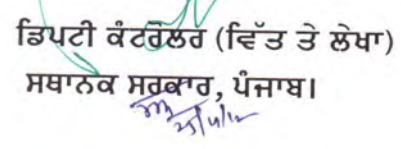 ਡਿਪਟੀ ਕੰਟਰੋਲਰ (ਵਿੱਤ ਤੇ ਲੇਖਾ)
ਸਥਾਨਕ ਸਰਕਾਰ, ਪੰਜਾਬ।